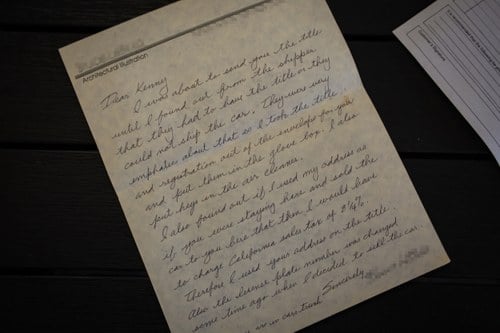 Architectural Illustration
Dear Kenny
I was about to send you the title
until I found out from the shipper
that they had to have the title or they
could not ship the car. They were very
emphatic about that so I took the title
and registration out of the envelope for you
and put them in the glove box. I also
put keys in the air cleaner.
I also found out if I used my address as
if you were staying here and sold the
car to you here that then I would have
to charge California sales tax of 8¼%.
Therefore I used your address on the title.
Also the license plate number was changed
some time ago when I decided to sell the car.
Sincerely
is in cars trunk